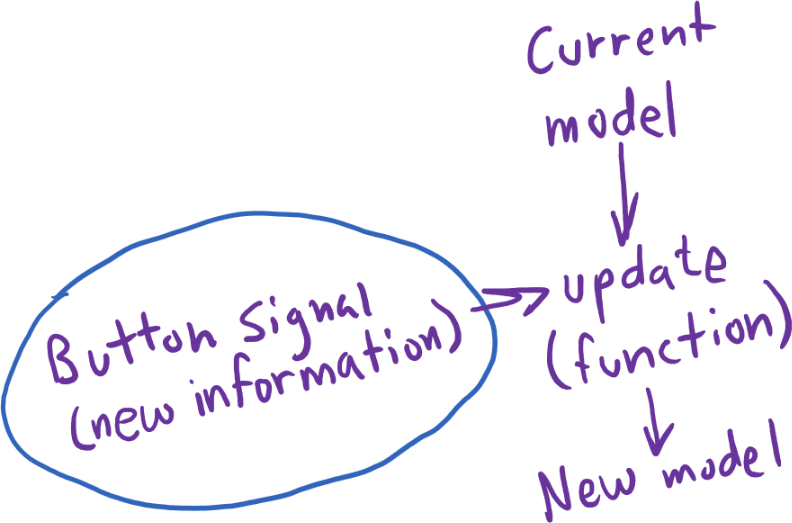 Current
model
Button signal
(new information)
update
(function)
New model